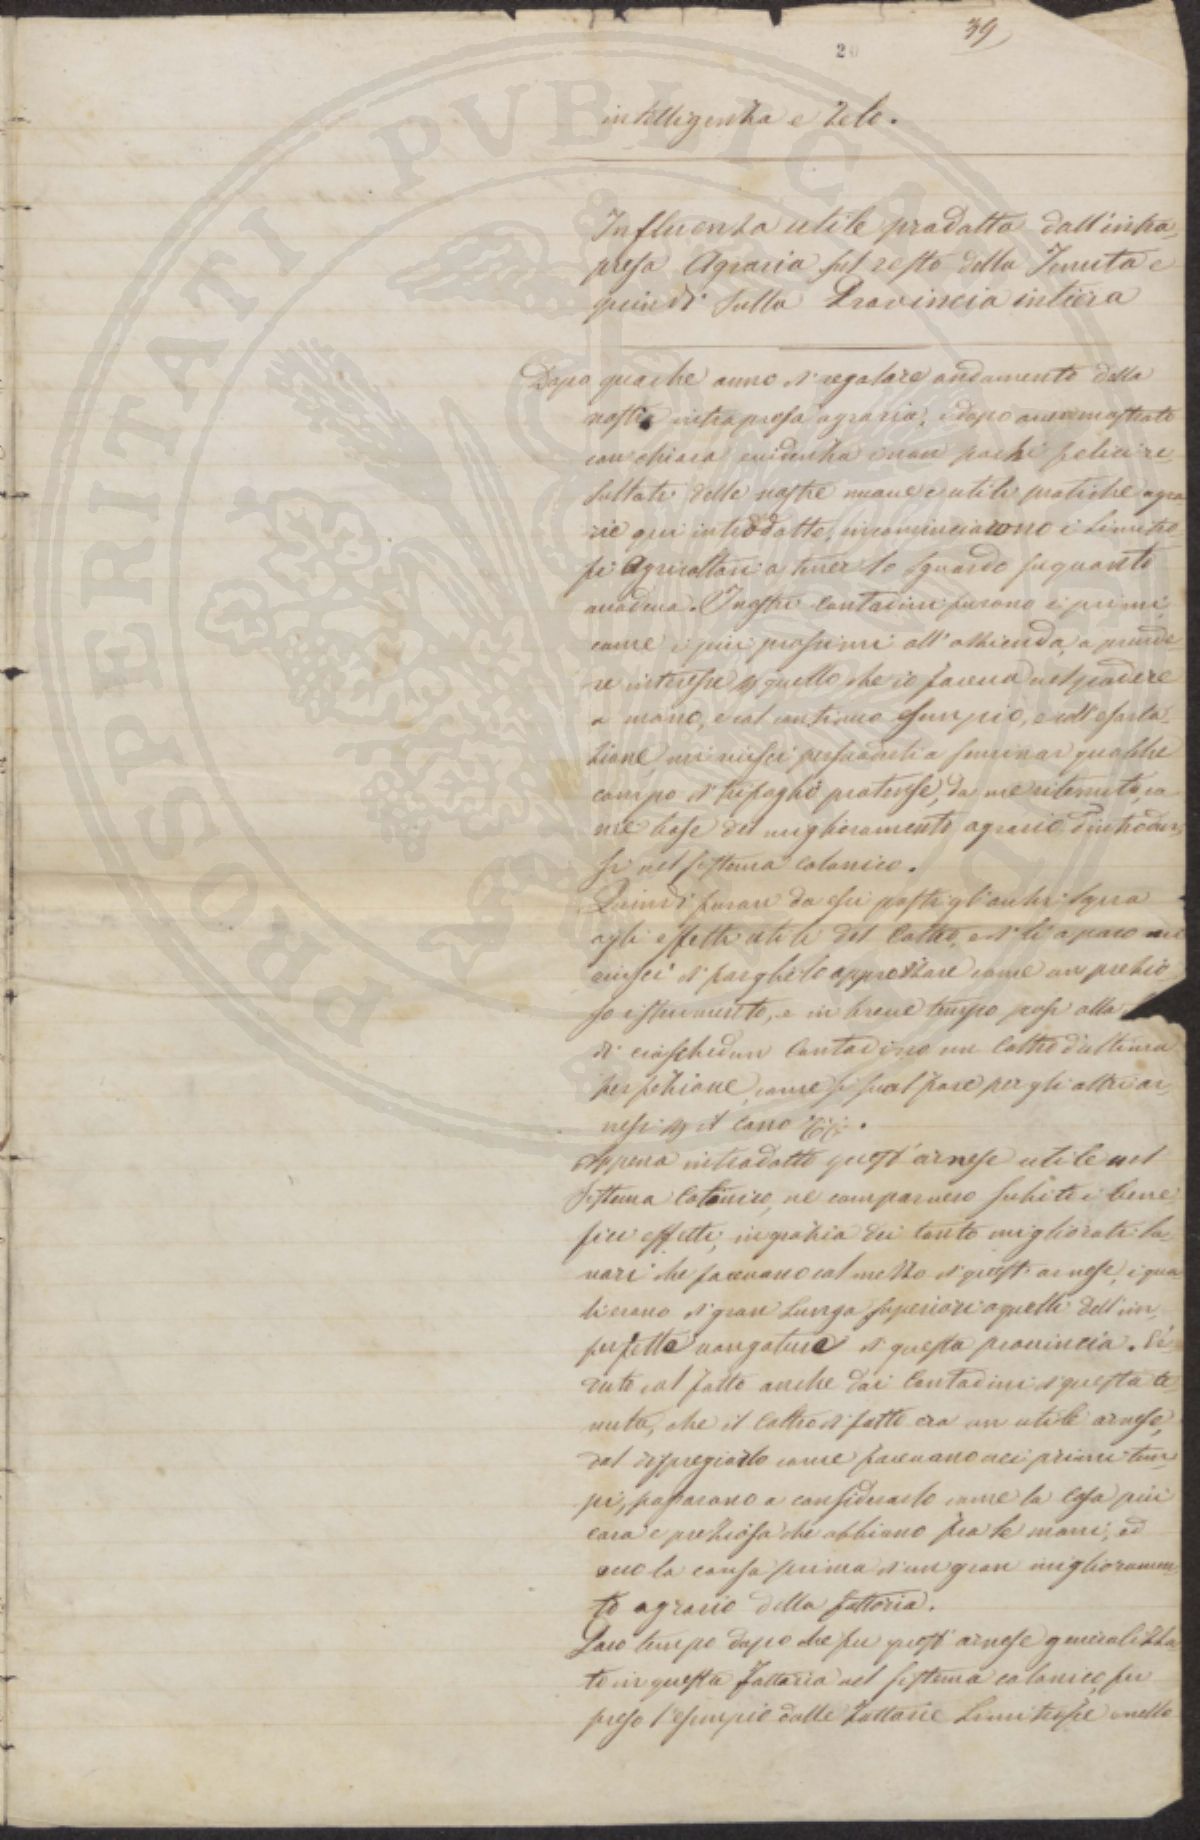 39
20
intelligenza e zelo.
Influenza utile prodotta dall'intra-
presa Agraria sul resto della Tenuta e
quindi sulla Provincia intiera
Dopo qualche anno di regolare andamento della
nostra intrapresa agraria, e dopo aver mostrato
con chiara evidenza i non pochi felici re-
sultati delle nostre nuove e utili pratiche agra-
rie qui introdotte, incominciarono i limitro-
fi Agricoltori a tener lo sguardo su quanto
accadeva. I nostri Contadini furono i primi,
come i più prossimi all'azienda, a prende-
re interesse di quello che io faceva nel podere
a mano, e col continuo esempio, e coll'esorta-
zione, mi riuscì persuaderli a seminar qualche
campo di trifoglio pratense, da me ritenuto co-
me base del miglioramento agrario d'introdur-
si nel sistema colonico.
Quindi furon da essi posti gli occhi sopra
agli effetti utili del Coltro, e di lì a poco mi
riuscì di farglielo apprezzare come un prezio-
so istrumento, e in breve tempo posi alla
di ciaschedun Contadino un Coltro d'ultima
perfezione, come si suol fare per gli altri ar-
nesi di il Carro &c.
Appena introdotto quest'arnese utile nel
sistema Colonico, ne comparvero subito i bene-
fici effetti, in grazia dei tanto migliorati la-
vori che facevano col mezzo di quest'arnese, i qua-
li erano di gran lunga superiori a quelli dell'im-
perfetta vangatura di questa provincia. Ve-
duto col fatto anche dai Contadini di questa te-
nuta, che il Coltro di fatto era un utile arnese,
dal dispregiarlo come facevano nei primi tem-
pi, passarono a considerarlo come la cosa più
cara e preziosa che abbiano fra le mani, ed
ecco la causa prima d'un gran miglioramen-
to agrario della fattoria.
Poco tempo dopo che fu quest'arnese generalizza-
to in questa fattoria nel sistema colonico, fu
preso l'esempio dalle fattorie limitrofe